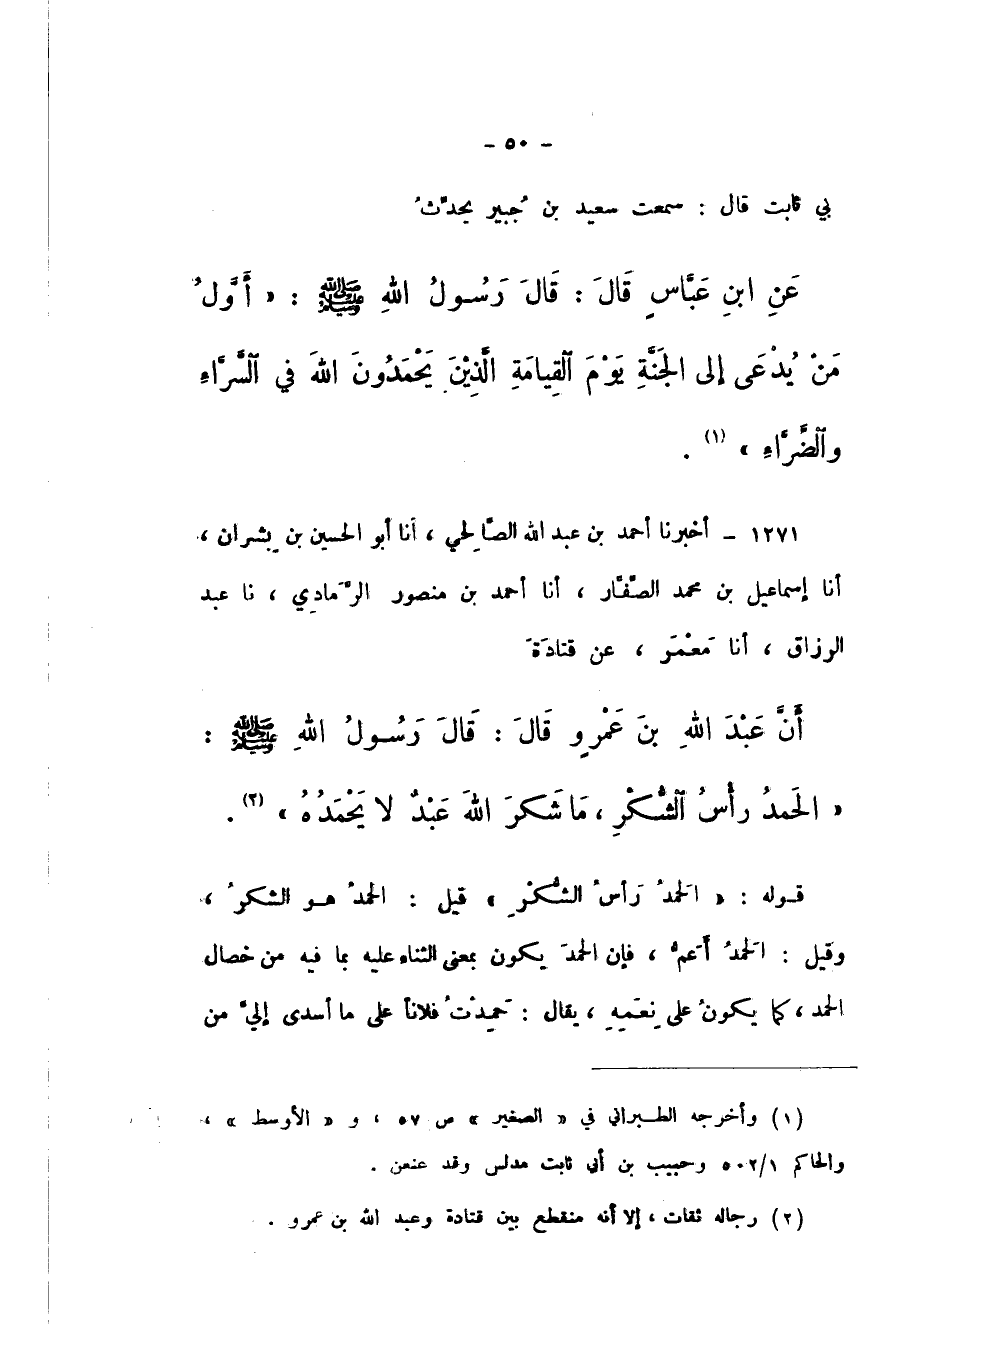 - ٥٠ -
بي ثابت قال : سمعت سعيد بن جُبير يحدّثُ
عَنِ ابنِ عَبَّاسٍ قَالَ : قَالَ رَسُولُ اللهِ ﷺ : « أَوَّلُ
مَنْ يُدْعَى إلى الجَنَّةِ يَوْمَ ٱلقِيامَةِ الَّذِيْنَ يَحْمَدُونَ اللهَ في ٱلسَّرَّاءِ
وٱلضَّرَّاءِ » (١) .
١٢٧١ - أخبرنا أحمد بن عبد الله الصَّالِحي ، أنا أبو الحسين بن بِشران ،
أنا إسماعيل بن محمد الصَّفَّار ، أنا أحمد بن منصور الرَّمَادِي ، نا عبد
الرزاق ، أنا مَعْمَر ، عن قتادَةَ
أَنَّ عَبْدَ اللهِ بنَ عَمْرٍو قَالَ : قَالَ رَسُولُ اللهِ ﷺ :
« الحَمدُ رأْسُ ٱلشُّكْرِ ، مَا شَكرَ اللهَ عَبْدٌ لا يَحْمَدُهُ » (٢) .
قوله : « الحَمدُ رَأسُ الشُّكْرِ » قيل : الحمدُ هو الشكرُ ،
وقيل : الحَمدُ أَعمُّ ، فإن الحمدَ يكون بمعنى الثناء عليه بما فيه من خصال
الحمد ، كما يكونُ على نِعَمِهِ ، يقال : حَمِدْتُ فلاناً على ما أسدى إليَّ من
(١) وأخرجه الطبراني في « الصغير » ص ٥٧ ، و « الأوسط » ،
والحاكم ٥٠٢/١ وحبيب بن أبي ثابت مدلس وقد عنعن .
(٢) رجاله ثقات ، إلا أنه منقطع بين قتادة وعبد الله بن عمرو .